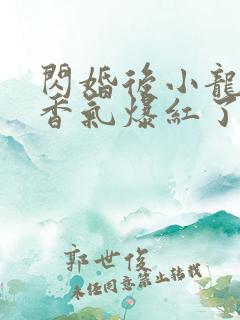 閃婚後小龍
香氣爆紅了
郭世俊
未經同意禁止轉載